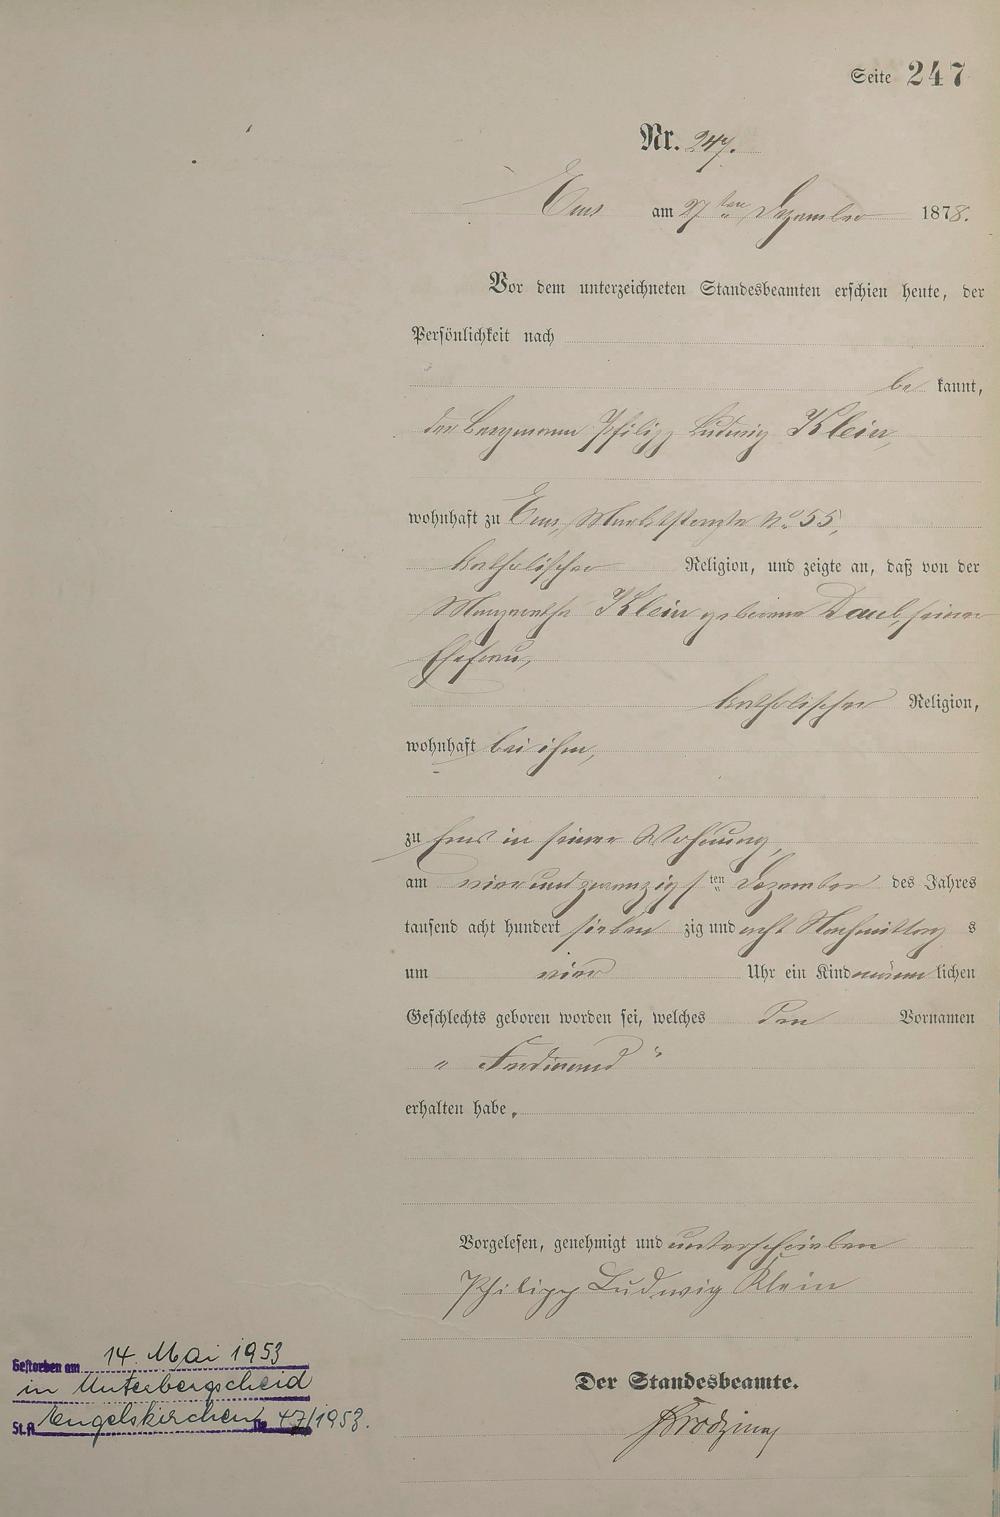 Seite 247
Nr. 247.
Ems am 27ten Dezember 1878.
Vor dem unterzeichneten Standesbeamten erschien heute, der
Persönlichkeit nach
be kannt,
der Bergmann Philipp Ludwig Klein,
wohnhaft zu Ems, Marktstraße No 55,
katholischer Religion, und zeigte an, daß von der
Margaretha Klein geborene Daub, seiner
Ehefrau,
katholischer Religion,
wohnhaft bei ihm,
zu Ems in seiner Wohnung,
am vierundzwanzigsten Dezember des Jahres
tausend acht hundert sieben zig und acht Nachmittag s
um vier Uhr ein Kind männ lichen
Geschlechts geboren worden sei, welches den Vornamen
" Ferdinand "
erhalten habe.
Vorgelesen, genehmigt und unterschrieben
Philipp Ludwig Klein
Gestorben am 14. Mai 1953
in Unterbergscheid
St.A. Engelskirchen Nr. 47/1953.
Der Standesbeamte.